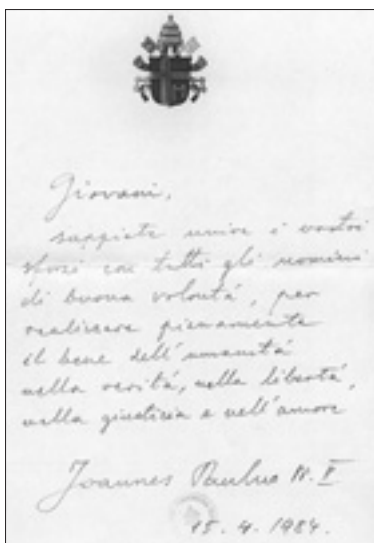 Giovani,
sappiate unire i vostri
sforzi con tutti gli uomini
di buona volontá, per
realizzare pienamente
il bene dell'umanitá
nella veritá, nella libertá,
nella giustizia e nell'amore
Joannes Paulus
15. 4. 1984.